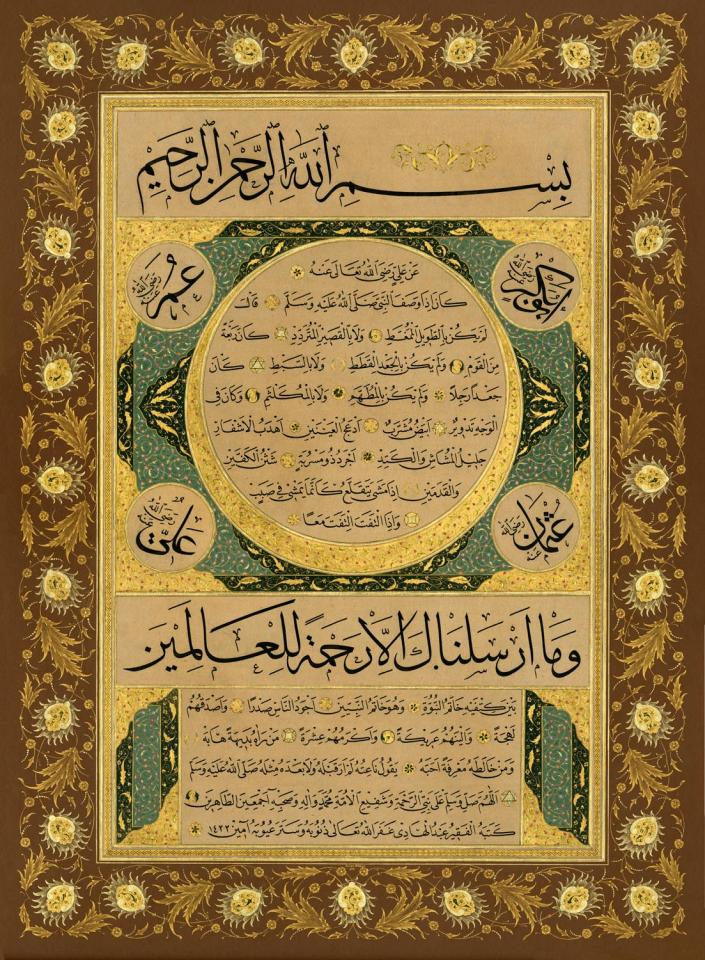 بِسْمِ اللهِ الرَّحْمٰنِ الرَّحِيمِ
أبو بكر رضي الله عنه
عمر رضي الله عنه
عن علي رضي الله تعالى عنه
كان اذا وصف النبي صلى الله عليه وسلم قال
لم يكن بالطويل الممغط ولا بالقصير المتردد كان ربعة
من القوم ولم يكن بالجعد القطط ولا بالسبط كان
جعدا رجلا ولم يكن بالمطهم ولا بالمكلثم وكان في
الوجه تدوير ابيض مشرب ادعج العينين اهدب الاشفار
جليل المشاش والكتد اجرد ذو مسربة شثن الكفين
والقدمين اذا مشى يتقلع كأنما يمشي في صبب
واذا التفت التفت معا
عثمان رضي الله عنه
علي رضي الله عنه
وما ارسلناك الا رحمة للعالمين
بين كتفيه خاتم النبوة وهو خاتم النبيين اجود الناس صدرا واصدقهم
لهجة والينهم عريكة واكرمهم عشرة من رآه بديهة هابه
ومن خالطه معرفة احبه يقول ناعته لم ار قبله ولا بعده مثله صلى الله عليه وسلم
اللهم صل وسلم على نبي الرحمة وشفيع الامة محمد وآله وصحبه اجمعين الطاهرين
كتبه الفقير عبد الهادي غفر الله تعالى ذنوبه وستر عيوبه آمين ١٤٢٢